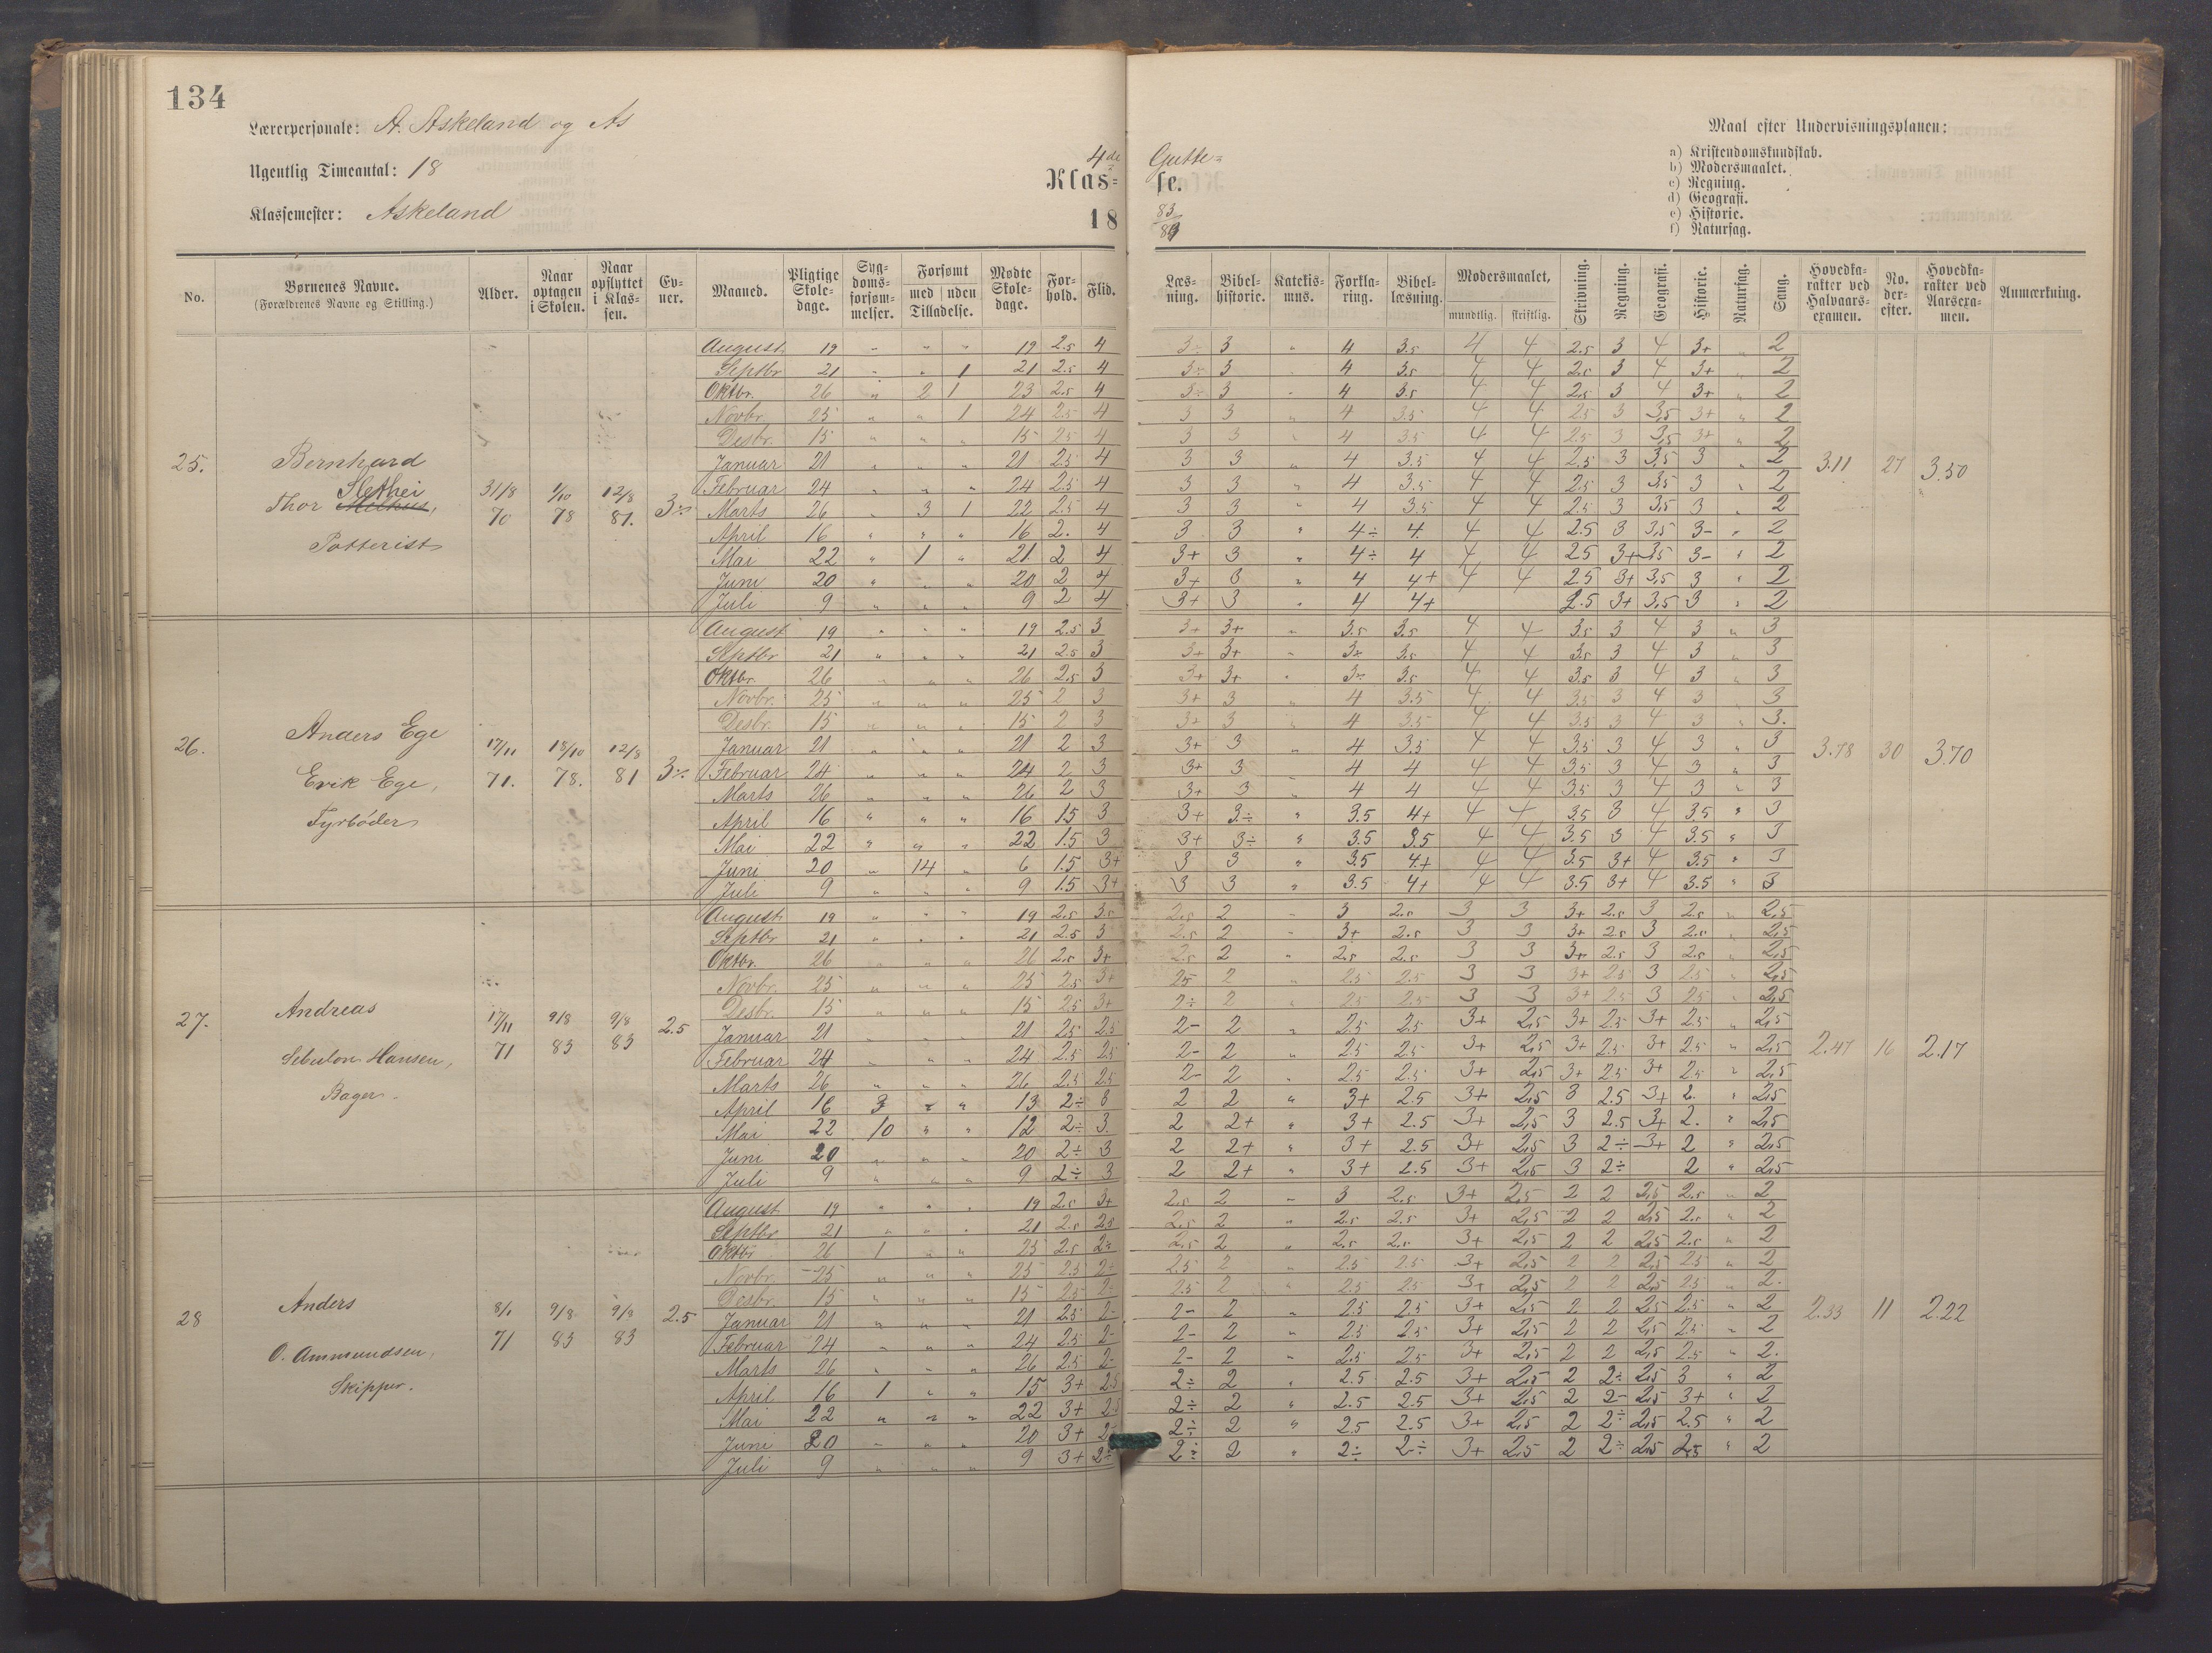 134
Lærerpersonale: A. Askeland og As
Ugentlig Timeantal: 18
Klassemester: Askeland
4de Gutte-
Klas- se.
18 83/84
Maal efter Undervisningsplanen:
a) Kristendomskundskab.
b) Modersmaalet.
c) Regning.
d) Geografi.
e) Historie.
f) Naturfag.
No. Børnenes Navne. (Forældrenes Navne og Stilling.) Alder. Naar optagen i Skolen. Naar opflyttet i Klassen. Evner. Maaned. Pligtige Skoledage. Sygdomsforsømmelser. Forsømt med uden Tilladelse. Mødte Skoledage. Forhold. Flid. Læsning. Bibelhistorie. Katekismus. Forklaring. Bibellæsning. Modersmaalet, mundtlig. skriftlig. Skrivning. Regning. Geografi. Historie. Naturfag. Sang. Hovedkarakter ved Halvaarsexamen. No. derefter. Hovedkarakter ved Aarsexamen. Anmærkning.
25. Bernhard
Thor Slethei
Potterist
31/8 70 1/10 78 12/8 81. 3÷
August 19 " " " 19 2.5 4 3÷ 3 " 4 3.5 4 4 2.5 3 4 3+ " 2
Septbr 21 " " 1 21 2.5 4 3÷ 3 " 4 3.5 4 4 2.5 3 4 3+ " 2
Oktbr. 26 " 2 1 23 2.5 4 3÷ 3 " 4 3.5 4 4 2.5 3 4 3+ " 2
Novbr. 25 " " 1 24 2.5 4 3 3 " 4 3.5 4 4 2.5 3 3,5 3+ " 2
Desbr. 15 " " " 15 2.5 4 3 3 " 4 3.5 4 4 2.5 3 3,5 3+ " 2
Januar 21 " " " 21 2.5 4 3 3 " 4 3.5 4 4 2.5 3 3,5 3 " 2
Februar 24 " " " 24 2.5 4 3 3 " 4 3.5 4 4 2.5 3 3,5 3 " 2
Marts 26 " 3 1 22 2.5 4 3 3 " 4 3.5 4 4 2.5 3 3,5 3 " 2
April 16 " " " 16 2. 4 3 3 " 4÷ 4. 4 4 2.5 3 3,5 3- " 2
Mai 22 " 1 " 21 2 4 3+ 3 " 4÷ 4 4 4 2.5 3+ 3,5 3- " 2
Juni 20 " " " 20 2 4 3+ 3 " 4 4+ 4 4 2.5 3+ 3,5 3 " 2
Juli 9 " " " 9 2 4 3+ 3 " 4 4+ 2.5 3+ 3,5 3 " 2
3.11 27 3.50
26. Anders Ege
Erik Ege,
Fyrbøder
17/11 71. 18/10 78. 12/8 81 3÷
August 19 " " " 19 2.5 3 3+ 3+ " 3.5 3.5 4 4 3.5 3 4 3 " 3
Septbr 21 " " " 21 2.5 3 3+ 3+ " 3÷ 3.5 4 4 3.5 3 4 3 " 3
Oktbr. 26 " " " 26 2.5 3 3+ 3+ " 3÷ 3.5 4 4 3.5 3 4 3 " 3
Novbr. 25 " " " 25 2 3 3+ 3 " 4 3.5 4 4 3.5 3 4 3 3
Desbr. 15 " " " 15 2 3 3+ 3 " 4 3.5 4 4 3.5 3 4 3 " 3.
Januar 21 " " " 21 2 3 3+ 3 " 4 3.5 4 4 3.5 3 4 3 " 3
Februar 24 " " " 24 2 3 3+ 3 4 4 4 4 3.5 3 4 3 " 3
Marts 26 " " " 26 2 3 3+ 3 " 4 4 4 4 3.5 3 4 3 " 3
April 16 " " " 16 1.5 3 3+ 3÷ " 3.5 4+ 4 4 3.5 3 4 3.5 " 3
Mai 22 " " " 22 1.5 3 3+ 3÷ " 3.5 3.5 4 4 3.5 3 4 3.5 " 3
Juni 20 " 14 " 6 1.5 3+ 3 3 " 3.5 4+ 4 4 3.5 3+ 4 3.5 " 3
Juli 9 " " " 9 1.5 3+ 3 3 " 3.5 4+ 4 4 3.5 3+ 4 3.5 " 3
3.78 30 3.70
27. Andreas
Sebulon Hansen,
Bager.
17/11 71 9/8 83 9/8 83 2.5
August 19 " " " 19 2.5 3.5 2.5 2 " 3 2.5 3 3 3+ 2.5 3 2.5 " 2,5
Septbr 21 " " " 21 2.5 3 2.5 2 " 3+ 2.5 3 3 3+ 2.5 3 2.5 " 2,5
Oktbr. 26 " " " 26 2.5 3+ 2.5 2 " 2.5 2.5 3 3 3+ 2.5 3 2.5 " 2,5
Novbr. 25 " " " 25 2.5 3+ 2.5 2 " 2.5 2.5 3 3 3+ 2.5 3 2.5 " 2,5
Desbr. 15 " " " 15 2.5 3+ 2÷ 2 " 2.5 2.5 3 3 3+ 2.5 3 2.5 " 2,5
Januar 21 " " " 21 2.5 2.5 2- 2 " 2.5 2.5 3+ 2,5 3+ 2.5 3+ 2.5 " 2,5
Februar 24 " " " 24 2.5 2.5 2- 2 " 2.5 2.5 3+ 2,5 3+ 2.5 3+ 2.5 " 2,5
Marts 26 " " " 26 2.5 2.5 2- 2 " 2.5 2.5 3+ 2,5 3+ 2.5 3+ 2.5 " 2,5
April 16 3 " " 13 2÷ 3 2 2 " 3+ 2.5 3+ 2,5 3 2.5 3+ 2. " 2,5
Mai 22 10 " " 12 2÷ 3. 2 2+ " 3+ 2.5 3+ 2,5 3 2.5 3+ 2. " 2,5
Juni 20 " " " 20 2÷ 3 2 2+ " 3+ 2.5 3+ 2,5 3 2÷ 3+ 2 " 2,5
Juli 9 " " " 9 2÷ 3 2 2+ " 3+ 2.5 3+ 2,5 3 2÷ 2 " 2,5
2.47 16 2.17
28 Anders
O. Ammundsen,
Skipper.
8/1 71 9/8 83 9/8 83 2.5
August 19 " " " 19 2.5 3+ 2.5 2 " 3 2.5 3+ 2,5 2 2 2,5 2.5 " 2
Septbr 21 " " " 21 2.5 2.5 2.5 2 " 2.5 2.5 3+ 2,5 2 2 2,5 2.5 " 2
Oktbr 26 1 " " 25 2.5 2÷ 2.5 2 " 2.5 2.5 3+ 2,5 2 2 2,5 2.5 " 2
Novbr. 25 " " " 25 2.5 2÷ 2.5 2 " 2.5 2.5 3+ 2,5 2 2 2,5 2.5 " 2
Desbr. 15 " " " 15 2.5 2- 2.5 2 " 2.5 2.5 3+ 2,5 2 2 2,5 2.5 " 2.
Januar 21 " " " 21 2.5 2- 2- 2 " 2.5 2.5 3+ 2,5 2 2 2,5 2.5 " 2
Februar 24 " " " 24 2.5 2- 2- 2 " 2.5 2.5 3+ 2,5 2 2 2,5 2.5 " 2
Marts 26 " " " 26 2.5 2- 2- 2 " 2.5 2.5 3+ 2,5 2 2 2,5 2.5 " 2.
April 16 1 " " 15 3+ 2.5 2÷ 2 " 2.5 2.5 3+ 2,5 2 2÷ 2,5 3 " 2
Mai 22 " " " 22 3+ 2.5 2÷ 2 " 2.5 2.5 3+ 2,5 2 2- 2,5 3+ " 2
Juni 20 " " " 20 3+ 2- 2÷ 2 " 2.5 2.5 3+ 2,5 2 2÷ 2,5 2.5 " 2
Juli 9 " " " 9 3+ 2÷ 2÷ 2 " 2÷ 2÷ 3+ 2,5 2 2÷ 2,5 2,5 " 2
2.33 11 2.22